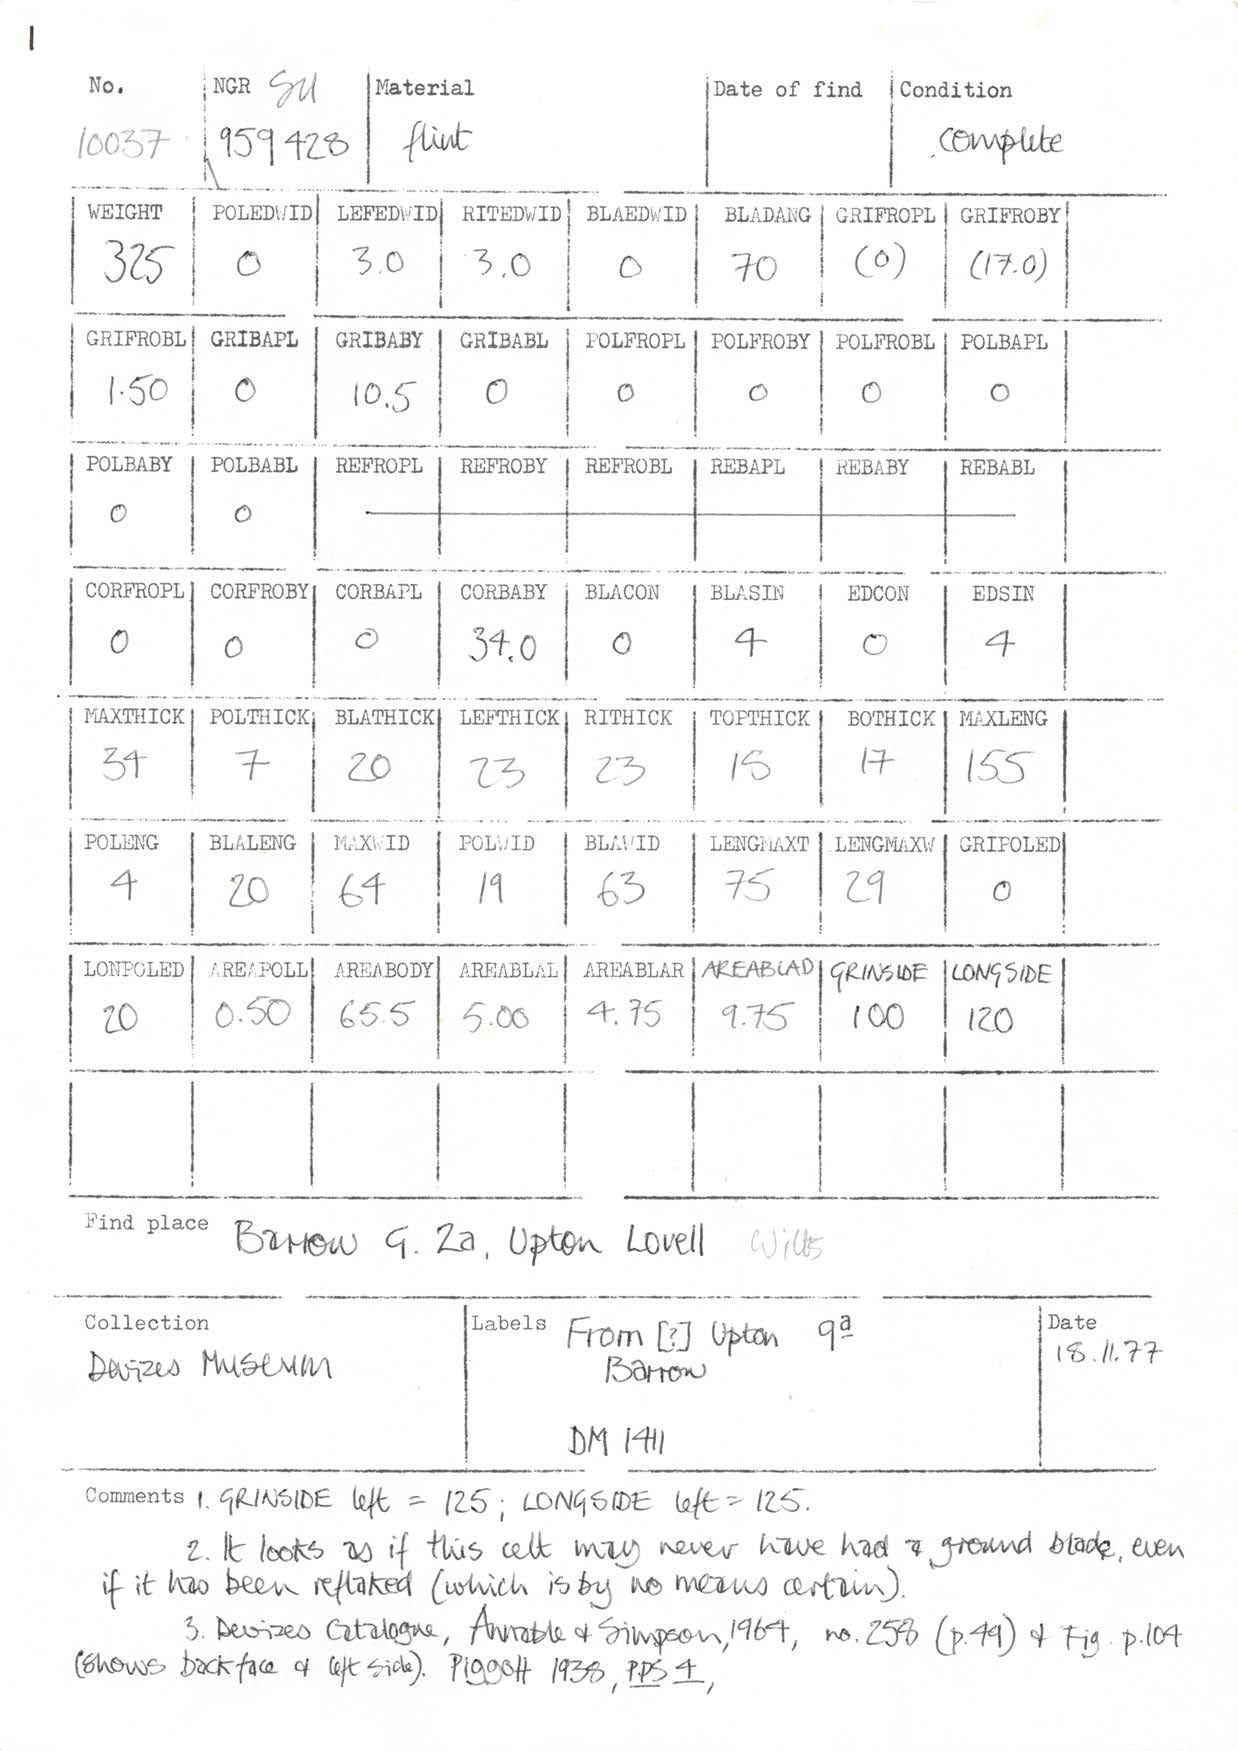 1
No. NGR SU Material Date of find Condition
10037 959 428 flint complete
WEIGHT POLEDWID LEFEDWID RITEDWID BLAEDWID BLADANG GRIFROPL GRIFROBY
325 0 3.0 3.0 0 70 (0) (17.0)
GRIFROBL GRIBAPL GRIBABY GRIBABL POLFROPL POLFROBY POLFROBL POLBAPL
1.50 0 10.5 0 0 0 0 0
POLBABY POLBABL REFROPL REFROBY REFROBL REBAPL REBABY REBABL
0 0
CORFROPL CORFROBY CORBAPL CORBABY BLACON BLASIN EDCON EDSIN
0 0 0 34.0 0 4 0 4
MAXTHICK POLTHICK BLATHICK LEFTHICK RITHICK TOPTHICK BOTHICK MAXLENG
34 7 20 23 23 18 17 155
POLENG BLALENG MAXWID POLWID BLAWID LENGMAXT LENGMAXW GRIPOLED
4 20 64 19 63 75 29 0
LONPOLED AREAPOLL AREABODY AREABLAL AREABLAR AREABLAD GRINSIDE LONGSIDE
20 0.50 65.5 5.00 4.75 9.75 100 120
Find place Barrow G. 2a, Upton Lovell Wilts
Collection Labels From [?] Upton 9a Date
Devizes Museum Barrow 18.11.77
DM 1411
Comments 1. GRINSIDE left = 125; LONGSIDE left = 125.
2. It looks as if this celt may never have had a ground blade, even
if it has been reflaked (which is by no means certain).
3. Devizes Catalogue, Annable & Simpson, 1964, no. 258 (p.49) & Fig. p.104
(shows back face & left side). Piggott 1938, PPS 4,